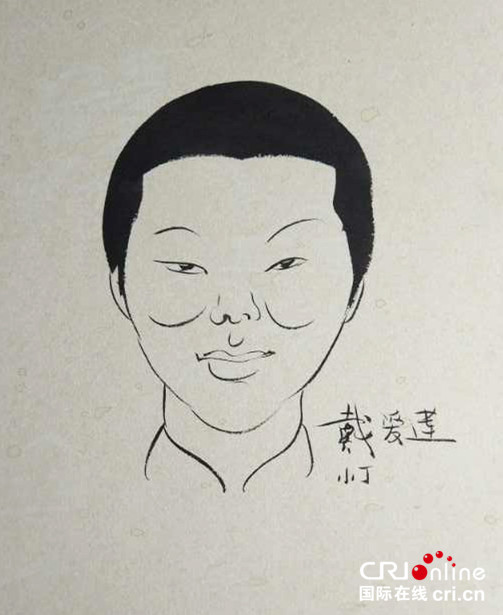 戴爱蓮
小丁
CRIonline
国际在线 cri.cn